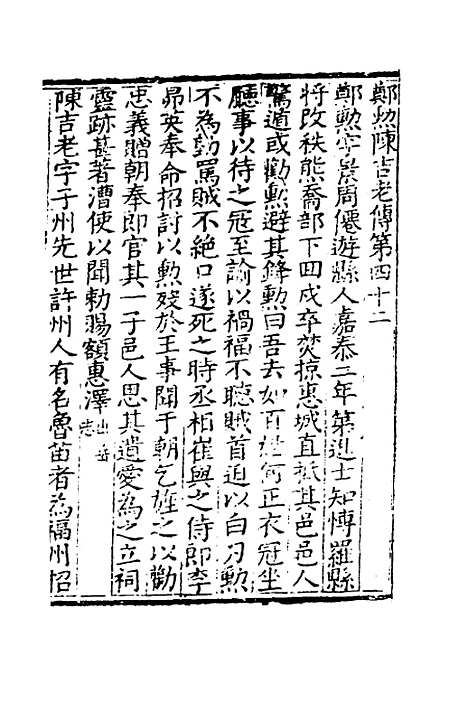 鄭勲陳吉老傳第四十二
鄭勲字景周僊遊縣人嘉泰二年第進士知愽羅縣
將改秩熊喬部下回戍卒焚掠惠城直抵其邑邑人
驚遁或勸勲避其鋒勲曰吾去如百姓何正衣冠坐
廳事以待之冦至諭以禍福不聽賊首迫以白刃勲
不為動罵賊不絶口遂死之時丞相崔與之侍郎李
昴英奉命招討以勲殁於王事聞于朝乞旌之以勸
忠義贈朝奉郎官其一子邑人思其遺愛為之立祠
靈跡甚著漕使以聞勅賜額惠澤出岳志
陳吉老字子州先世許州人有名魯苗者為福州招